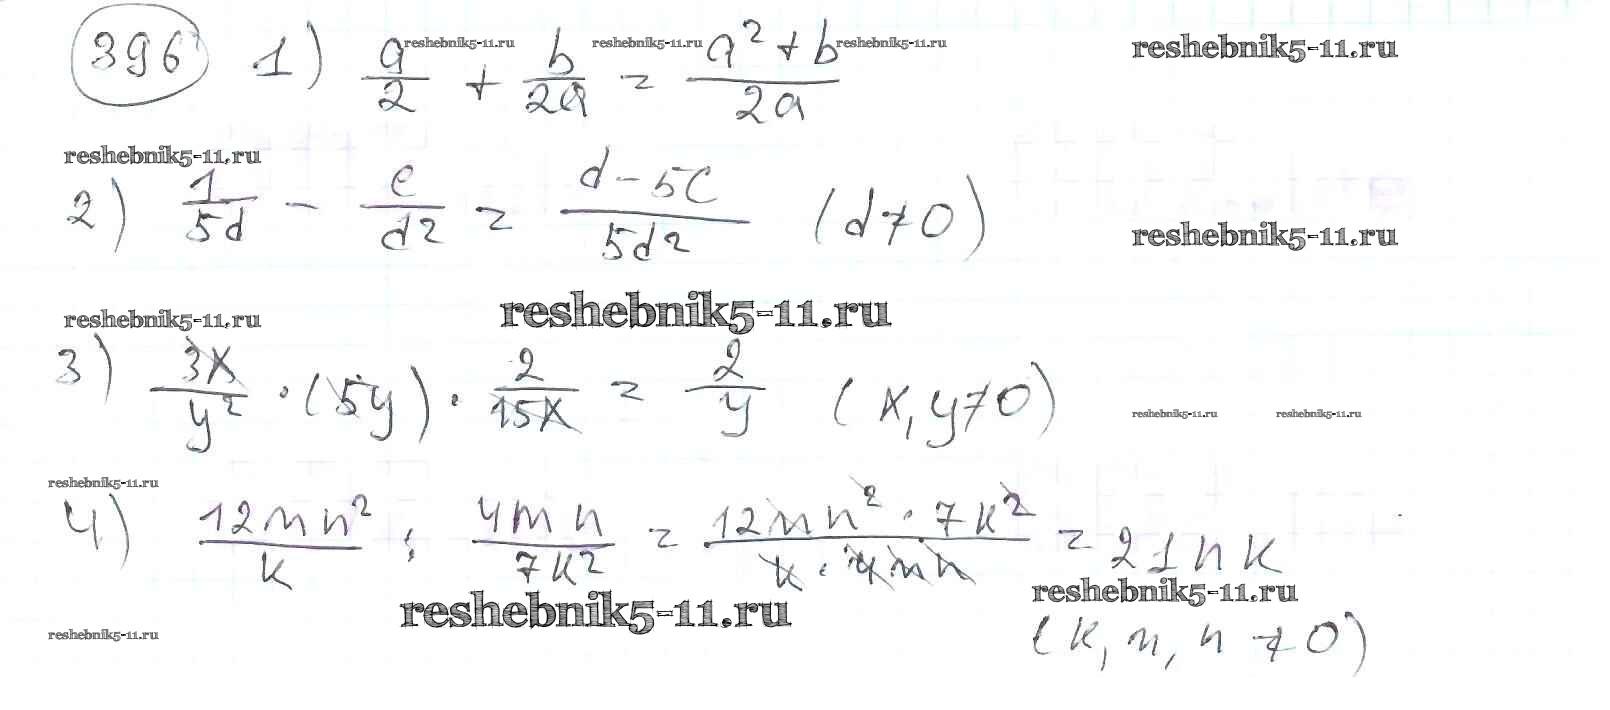 396 1) a/2 + b/2a = (a² + b)/2a
reshebnik5-11.ru reshebnik5-11.ru reshebnik5-11.ru reshebnik5-11.ru
reshebnik5-11.ru
2) 1/5d - c/d² = (d - 5c)/5d² (d≠0)
reshebnik5-11.ru
reshebnik5-11.ru reshebnik5-11.ru
3) 3x/y² · (5y) · 2/15x = 2/y (x, y≠0)
reshebnik5-11.ru reshebnik5-11.ru
reshebnik5-11.ru
4) 12mn²/k : 4mn/7k² = (12mn² · 7k²)/(k · 4mn) = 21nk
reshebnik5-11.ru reshebnik5-11.ru
reshebnik5-11.ru
(k, m, n ≠0)